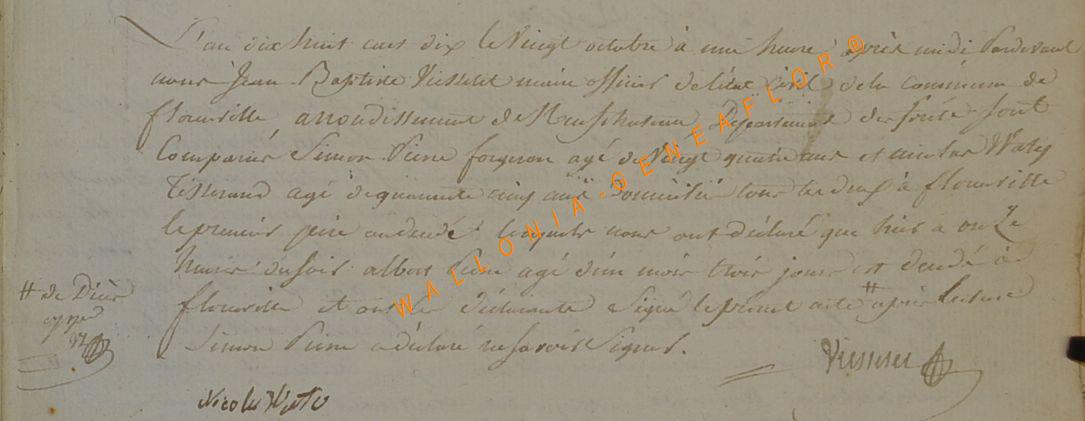 L'an dix huit cent dix le Vingt octobre à une heure après midi Pardevant
nous Jean Baptiste maire officier de létat civil de la commune de
florenville arrondissement de Neufchateau Département des forêts sont
Comparus Simon Pierre forgeron agé de Vingt quatre ans et nicolas Watry
Tisserand agé de quarante cinq ans Domiciliés tous les deux à florenville
le premier père au décédé lesquels nous ont déclaré que hier à onze
heures du soir albert Pierre agé d'un mois trois jours est décédé à
florenville et ont les déclarants Signé le présent acte # après lecture
Simon Pierre a déclaré ne savoir Signer.
# de Décès
Nicolas
WALLONIA-GENEAFLOR®